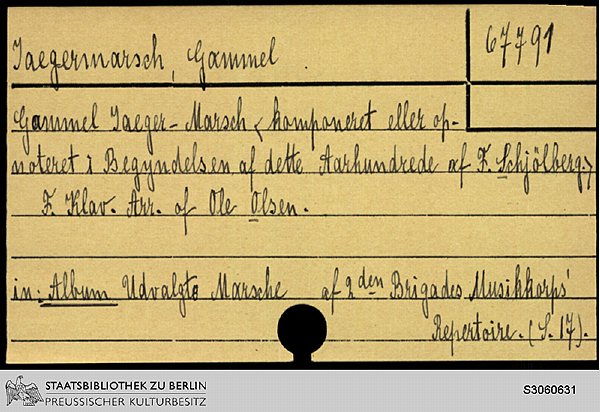 Jaegermarsch, Gammel
67791
Gammel Jaeger-Marsch < komponeret eller op-
noteret i Begyndelsen af dette Aarhundrede af F. Schjölberg. >
F. Klav. Arr. af Ole Olsen.
in: Album Udvalgte Marsche af 2den Brigades Musikkorps'
Repertoire. (S. 17).
STAATSBIBLIOTHEK ZU BERLIN
PREUSSISCHER KULTURBESITZ
S3060631